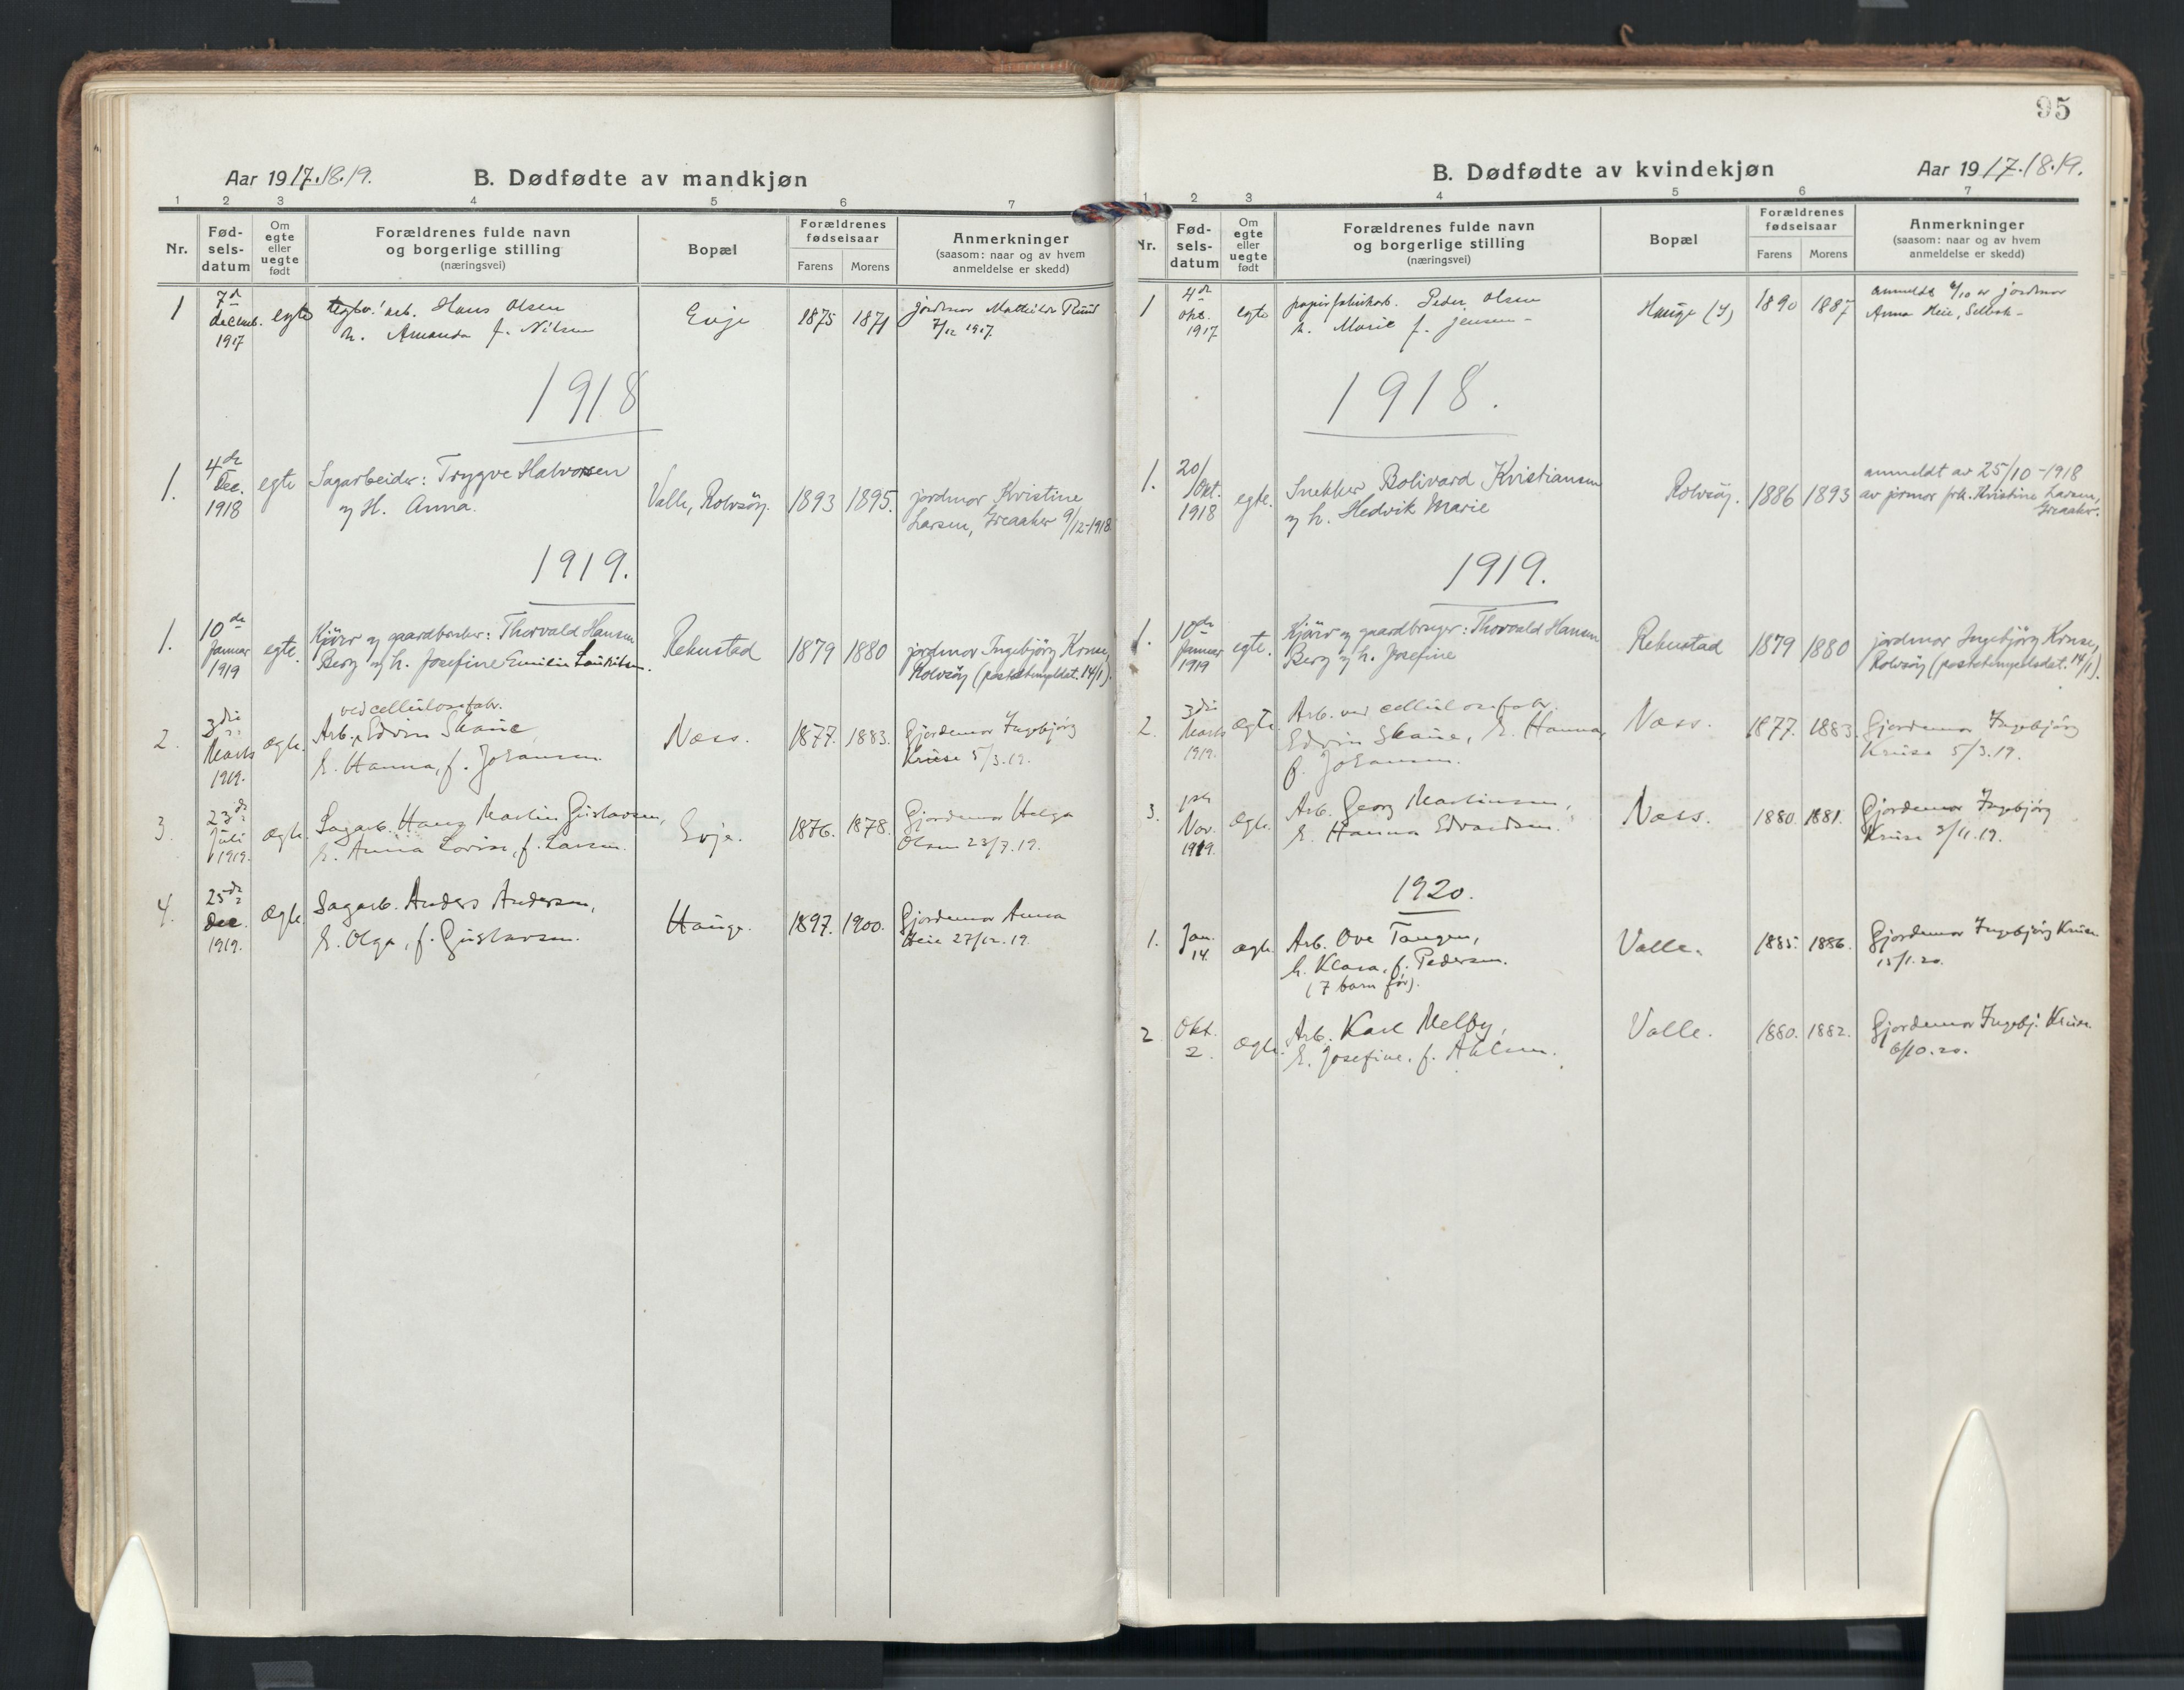 95
Aar 1917.18.19.
B. Dødfødte av mandkjøn
1 2 3 4 5 6 7
Nr.
Fød-
sels-
datum
Om
egte
eller
uegte
født
Forældrenes fulde navn
og borgerlige stilling
(næringsvei)
Bopæl
Forældrenes
fødselsaar
Farens Morens
Anmerkninger
(saasom: naar og av hvem
anmeldelse er skedd)
1 7de decemb. 1917 egte arb. Hans Olsen
h. Amanda f. Nilsen
Evje 1875 1871 jordmor Mathilde Ruud
7/12 1917.
1918
1. 4de Dec. 1918 egte Sagarbeider: Trygve Halvorsen
og H. Anna.
Valle, Rolvsöy. 1893 1895. jordmor Kristine
Larsen, Greaaker 9/12-1918.
1919.
1. 10de Januar 1919 egte. Kjører og gaardbruker: Thorvald Hansen
Berg og h. Josefine Emilie Lauritsen.
Rekustad 1879 1880 jordmor Ingebjörg Kruse,
Rolvsöy (poststempeldat. 14/1).
ved cellulosefabr.
2. 3die Marts 1919. ægte. Arb. Edvin Skaue,
h. Hanna, f. Johansen
Næss. 1877. 1883. Gjordemor Ingebjörg
Kruse 5/3.19.
3. 23de Juli 1919. ægte. Sagarb. Hans Martin Gustavsen,
h. Anna Lovise, f. Larsen.
Evje. 1876. 1878. Gjordemor Helga
Olsen 23/7.19.
4. 25de Dec. 1919. ægte. Sagarb. Anders Andersen,
h. Olga, f. Gustavsen.
Hauge. 1897. 1900. Gjordemor Anna
Heie 27/12.19.
B. Dødfødte av kvindekjøn
Aar 1917.18.19.
1 2 3 4 5 6 7
Nr.
Fød-
sels-
datum
Om
egte
eller
uegte
født
Forældrenes fulde navn
og borgerlige stilling
(næringsvei)
Bopæl
Forældrenes
fødselsaar
Farens Morens
Anmerkninger
(saasom: naar og av hvem
anmeldelse er skedd)
1 4de okt. 1917 egte papirfabrikarb. Peder Olsen
h. Marie f. Jensen -
Hauge (Y) 1890 1887 anmeldt 6/10 av jordmor
Anna Heie, Selbak -
1918.
1. 20/ Okt. 1918 egte. Snekker Bolivard Kristiansen
og h. Hedvik Marie
Rolvsöy. 1886 1893 anmeldt av 25/10-1918
av jormor frk. Kristine Larsen,
Greaaker.
1919.
1. 10de Januar 1919 egte. Kjører og gaardbruger: Thorvald Hansen
Berg og h. Josefine
Rekustad 1879 1880 jordmor Ingebjörg Kruse,
Rolvsöy (poststempelsdat. 14/1).
2. 3die Marts 1919. ægte Arb. ved cellulosefabr.
Edvin Skaue, h. Hanna,
f. Johansen.
Næss. 1877. 1883. Gjordemor Ingebjörg
Kruse 5/3.19.
3. 1ste Nov. 1919. ægte. Arb. Georg Martinsen,
h. Hanna Edvardsen.
Næss. 1880. 1881. Gjordemor Ingebjörg
Kruse 3/11.19.
1920.
1. Jan. 14. ægte Arb. Ove Tangen,
h. Klara, f. Pedersen.
(7 barn før).
Valle. 1885. 1886. Gjordemor Ingebjörg Kruse
15/1.20.
2. Okt. 2. ægte. Arb. Karl Melby,
h. Josefine, f. Ahlsen.
Valle. 1880. 1882. Gjordemor Ingebj. Kruse
6/10.20.